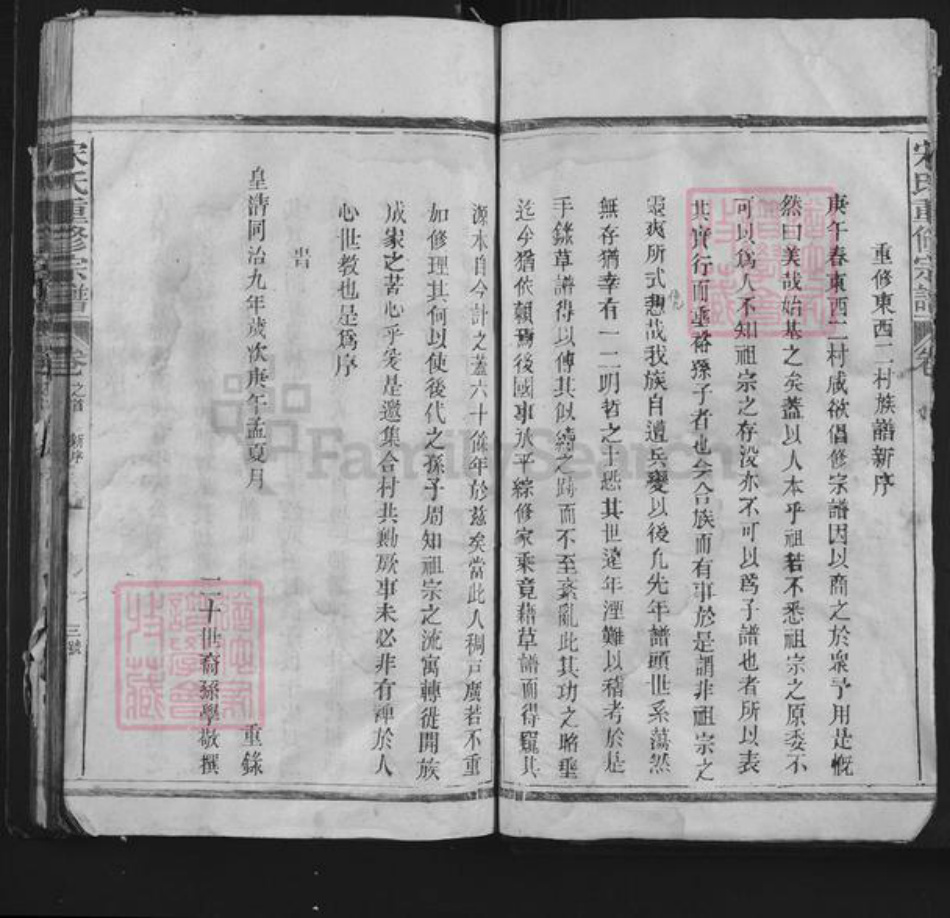 宋氏重修宗譜 卷
重修東西二村族譜新序
庚午春東西二村咸欲倡修宗譜因以商之於衆予用是慨
然曰美哉始基之矣蓋以人本乎祖若不悉祖宗之原委不
可以爲人不知祖宗之存没亦不可以爲子譜也者所以表
其實行而垂裕孫子者也今合族而有事於是謂非祖宗之
靈爽所式憑哉我族自遭兵變以後凡先年譜頭世系蕩然
無存猶幸有一二明哲之士恐其世遠年湮難以稽考於是
手錄草譜得以傳其似續之蹟而不至紊亂此其功之昭垂
迄今猶依賴焉後國事放平綜修家乘竟藉草譜而得窺其
源本自今計之蓋六十餘年於兹矣當此人稠戸廣若不重
加修理其何以使後代之孫子周知祖宗之流寓轉徙開族
成家之苦心乎爰是邀集合村共勷厥事未必非有裨於人
心世教也是爲序
旹
皇清同治九年歲次庚午孟夏月
重錄
二十世裔孫學敬撰
宋氏重修宗譜 卷之首 新序 三號
FamilySearch